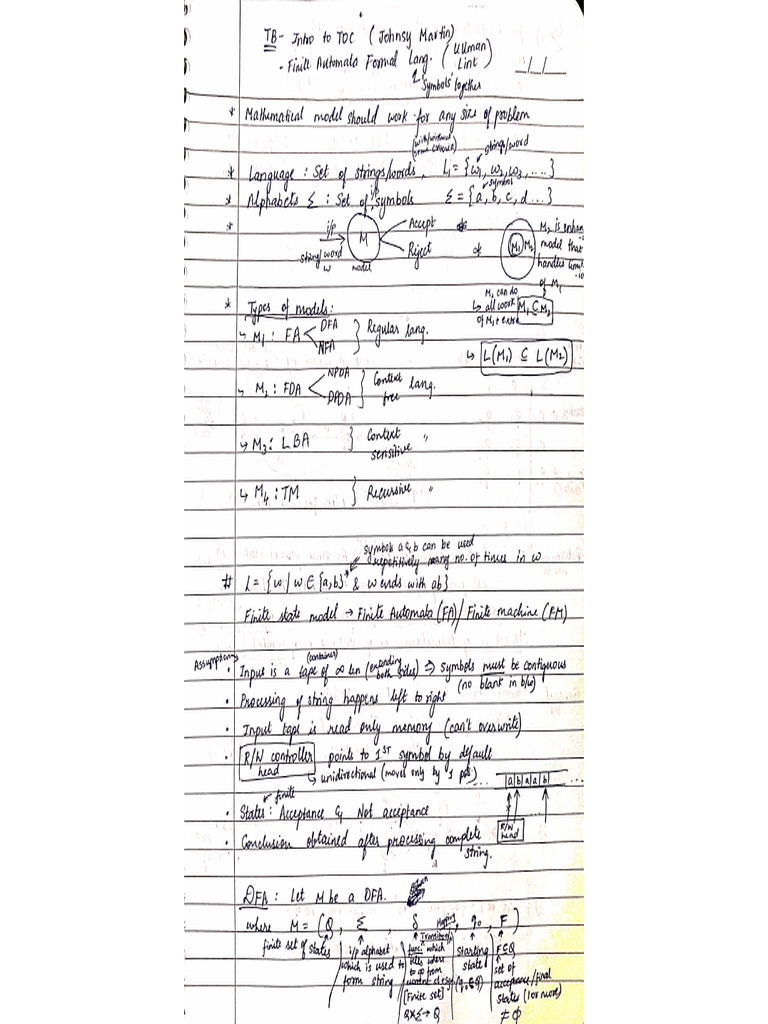 TB - Intro to TOC (Johnsy Martin)
- Finite Automata Formal Lang. (Ullman Lint)
"symbols" together
* Mathematical model should work for any size of problem
(with/without some criteria) string/word
* Language : Set of strings/words, L₁ = {w₁, w₂, w₃, ....}
i/p symbol
* Alphabets Σ : Set of symbols Σ = {a, b, c, d ...}
* i/p M Accept *
string/word w model Reject
* M₁ M₂ M₂ is enhan
model that
handles limi
of M₁
M₂ can do
↳ all work M₁ ⊆ M₂
of M₁ + extra
* Types of models:
↳ M₁ : FA < DFA NFA } Regular lang.
↳ L(M₁) ⊆ L(M₂)
↳ M₂ : FDA < NPDA DPDA } Context free lang.
↳ M₃ : LBA } Context sensitive "
↳ M₄ : TM } Recursive "
symbols a & b can be used
repetitively many no. of times in w
# L = {w | w ∈ {a,b}* & w ends with ab}
Finite state model → Finite Automata (FA) / Finite machine (FM)
Assumptions
(container)
• Input is a tape of ∞ len (extending both sides) ⇒ Symbols must be contiguous
(no blank in b/w)
• Processing of string happens left to right
• Input tape is read only memory (can't overwrite)
• R/W controller head points to 1ST symbol by default
↳ unidirectional (moves only by 1 pos)
... a b a a b ...
R/W head
finite
• States : Acceptance & Not acceptance
• Conclusion obtained after processing complete string.
DFA : Let M be a DFA.
where M = (Q, Σ, δ, q₀, F)
finite set of states
i/p alphabet which is used to form string
Mapping
Transition func which tells where to go from
[Finite set]
Q×Σ→Q
starting state (q₀∈Q)
F⊆Q
set of acceptance/final states (1 or more)
≠ ϕ